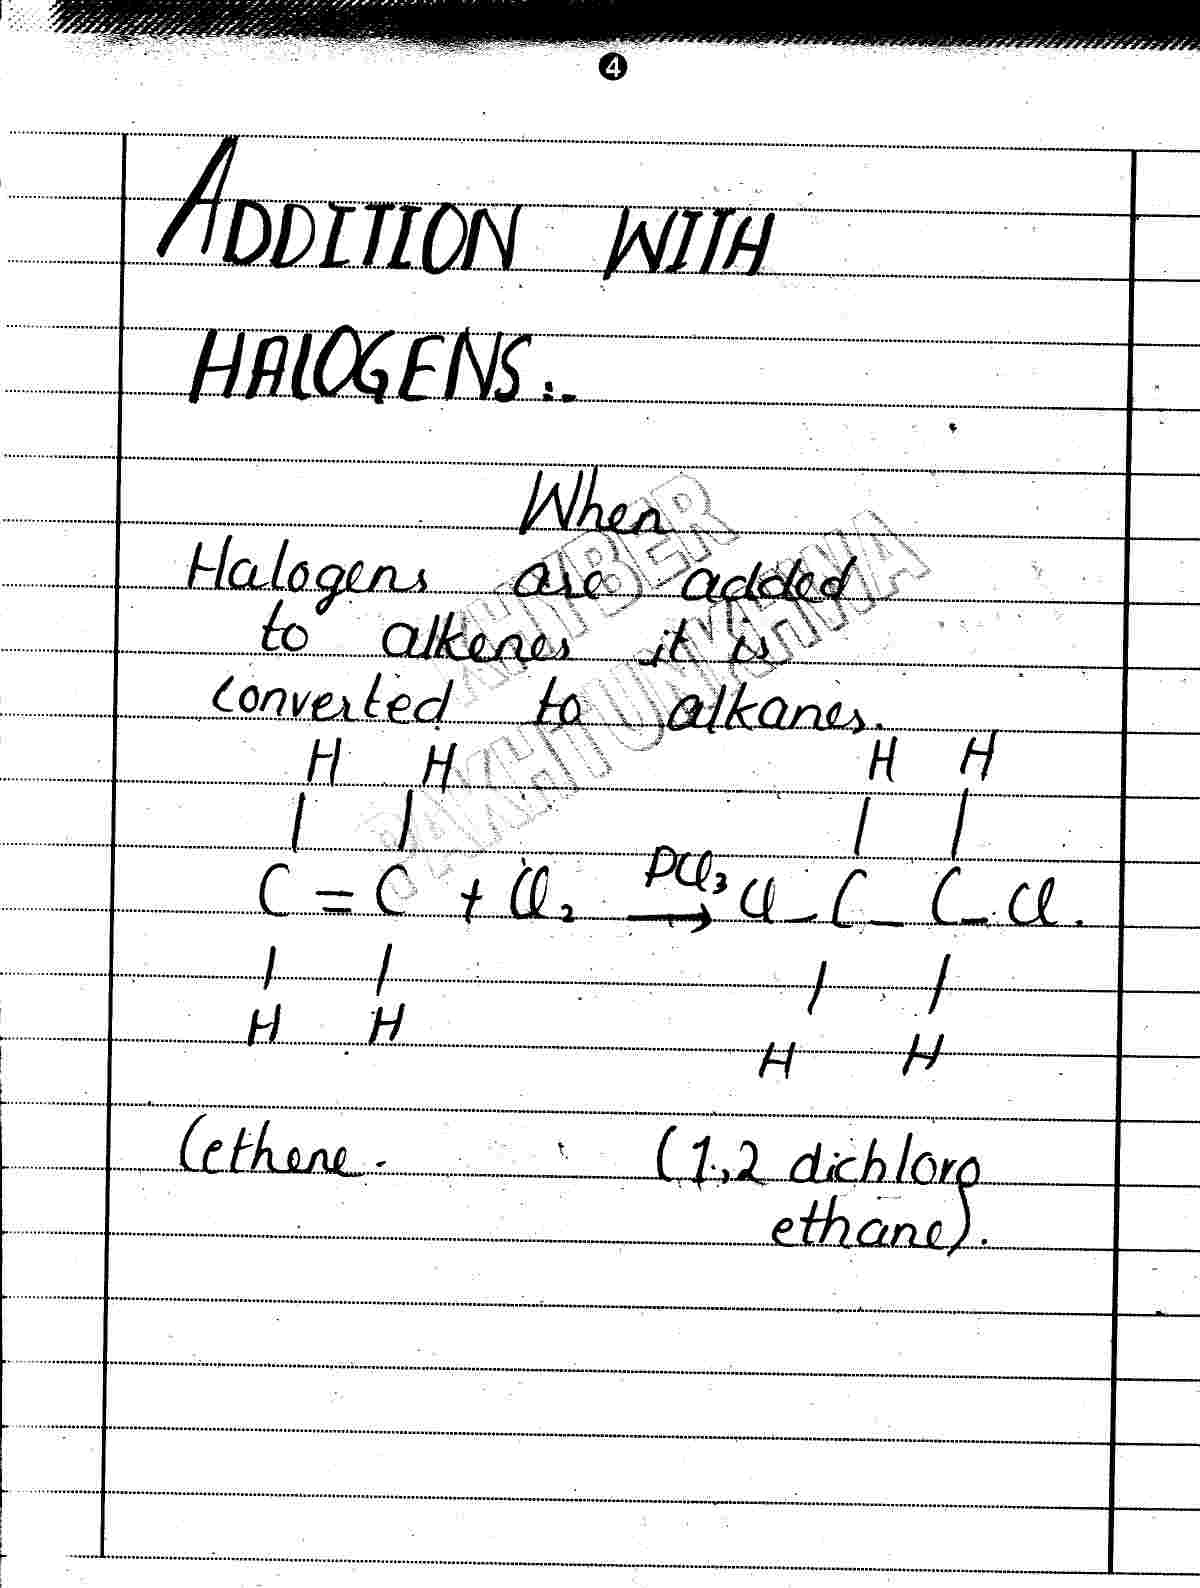 4
ADDITION WITH
HALOGENS:-
When
Halogens are added
to alkenes it is
converted to alkanes.
KHYBER
PAKHTUNKHWA
H H H H
| | | |
C = C + Cl₂ PCl₃ → Cl - C - C - Cl.
| | | |
H H H H
(ethene. (1,2 dichloro
ethane).